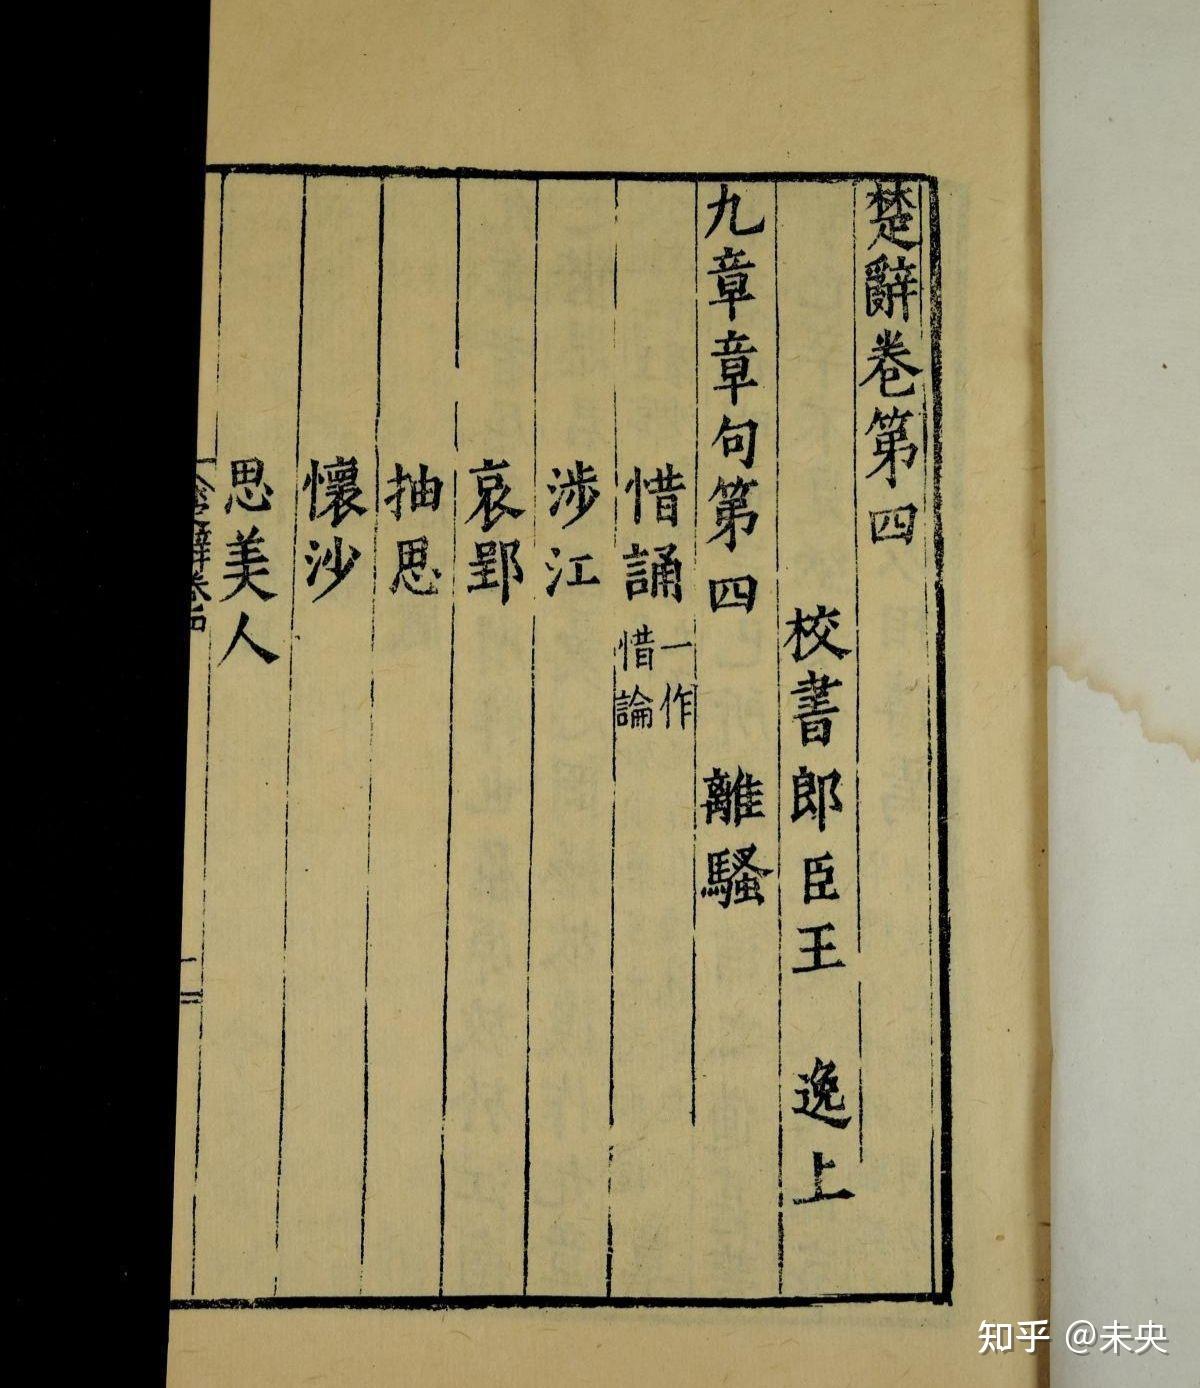 楚辭卷第四
校書郎臣王　逸上
九章章句第四　離騷
惜誦一作惜論
涉江
哀郢
抽思
懷沙
思美人
知乎 @未央